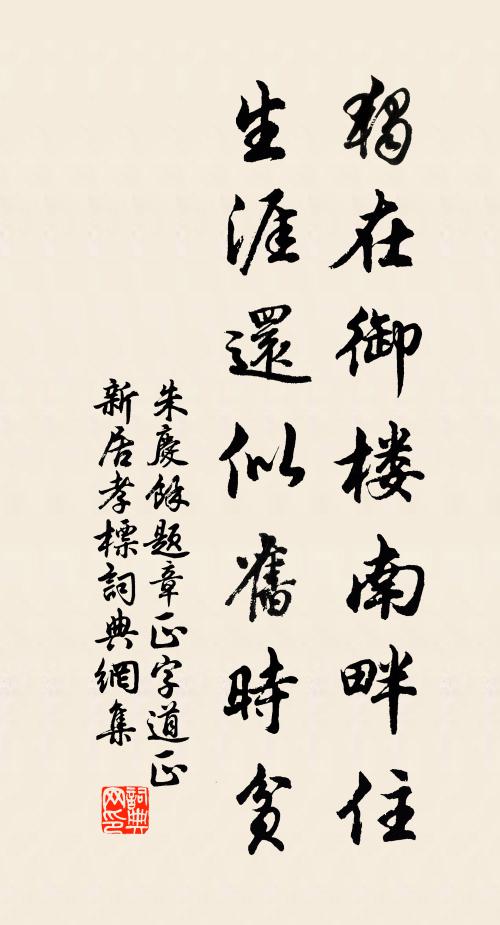 獨在御楼南畔住
生涯還似舊時貧
朱慶餘題章正字道正
新居孝標詞典網集
詞典
网印